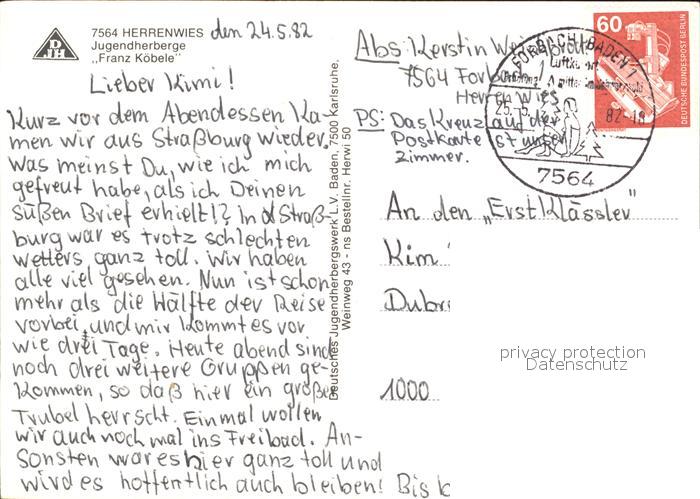 7564 HERRENWIES
Jugendherberge
„Franz Köbele"
DJH
den 24.5.82
Lieber Kimi!
Kurz vor dem Abendessen Ka-
men wir aus Straßburg wieder.
Was meinst Du, wie ich mich
gefreut habe, als ich Deinen
süßen Brief erhielt!? In Straß-
burg war es trotz schlechten
wetters ganz toll. Wir haben
alle viel gesehen. Nun ist schon
mehr als die Hälfte der Reise
vorbei, und mir Kommt es vor
wie drei Tage. Heute abend sind
noch drei weitere Gruppen ge-
Kommen, so daß hier ein großer
Trubel herrscht. Einmal wollen
wir auch noch mal ins Freibad. An-
sonsten war es hier ganz toll und
wird es hoffentlich auch bleiben! Bis
Deutsches Jugendherbergswerk L.V. Baden, 7500 Karlsruhe,
Weinweg 43 - ns Bestellnr. Herwi 50
Abs: Kerstin
7564
PS: Das Kreuz auf der
Postkarte ist unser
Zimmer.
60
DEUTSCHE BUNDESPOST BERLIN
FORBACH, BADEN 1
Luftkurort
25.-5. 82-18
7564
An den „Erstklässler"
Kim
Dubr
1000
privacy protection
Datenschutz